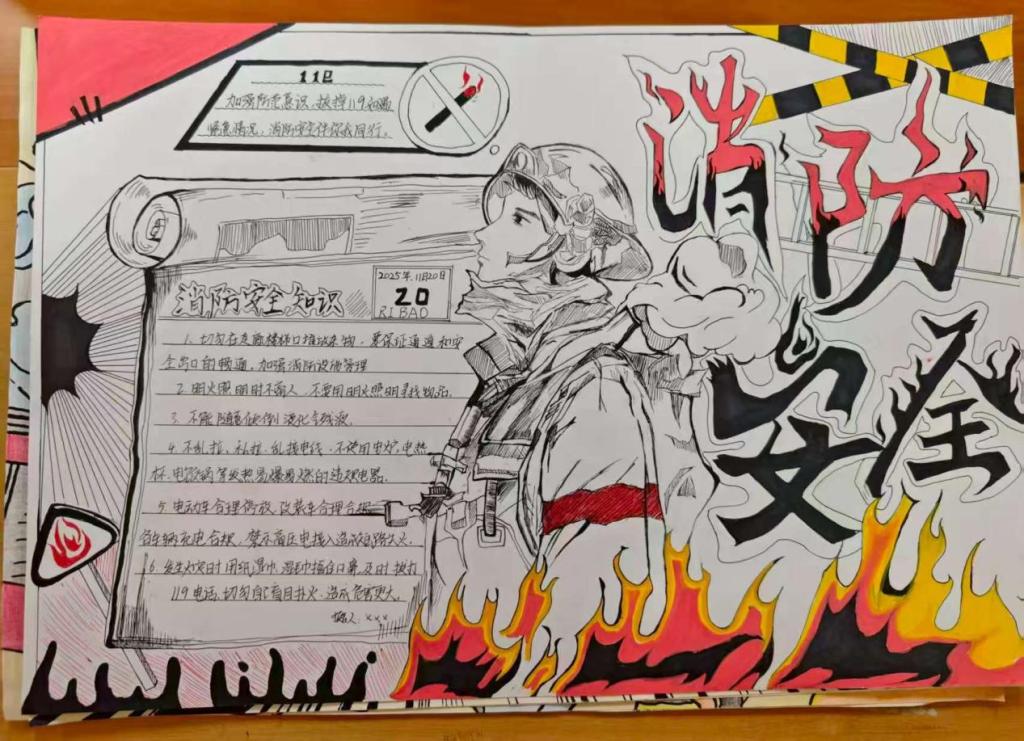 119
加强防范意识，拨掉119和遇
紧急情况，消防安全伴你我同行。
消防安全
消防安全知识
2025年11月20日
20
RIBAO
1. 切勿在走廊楼梯口堆放杂物，要保证通道和安
全出口的畅通，加强消防设施管理
2. 明火照明时不离人，不要用明火照明寻找物品。
3. 不能随意倾倒液化气残液。
4. 不乱拉、私拉、乱接电线，不使用电炉、电热
杯、电饭锅等
易爆易燃的违规电器。
5. 电动车合理停放
车辆充电合规，禁示高压电接入造成电路失火。
6. 发生火灾时用纸湿巾、湿毛巾捂住口鼻及时拨打
119电话，切勿自己盲目扑火，造成危害更大。
×××